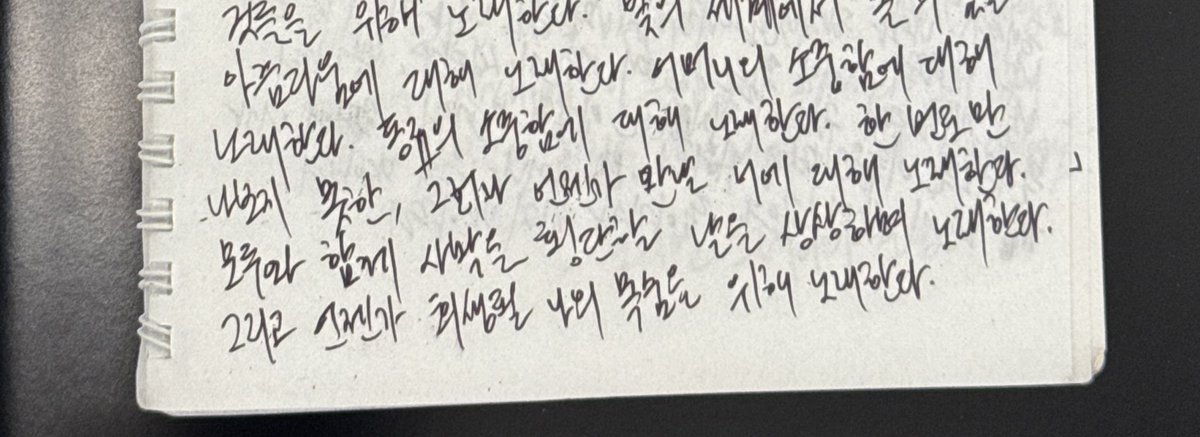 것들을 위해 노래한다.
아름다움에 대해 노래한다. 어머니의 소중함에 대해
노래한다. 의 소중함에 대해 노래한다. 한 번도 만
나보지 못한, 그러나 언젠가 만날 너에 대해 노래한다.
모두와 함께 사막을 횡단할 날을 상상하며 노래한다.
그리고 언젠가 희생될 나의 목숨을 위해 노래한다.